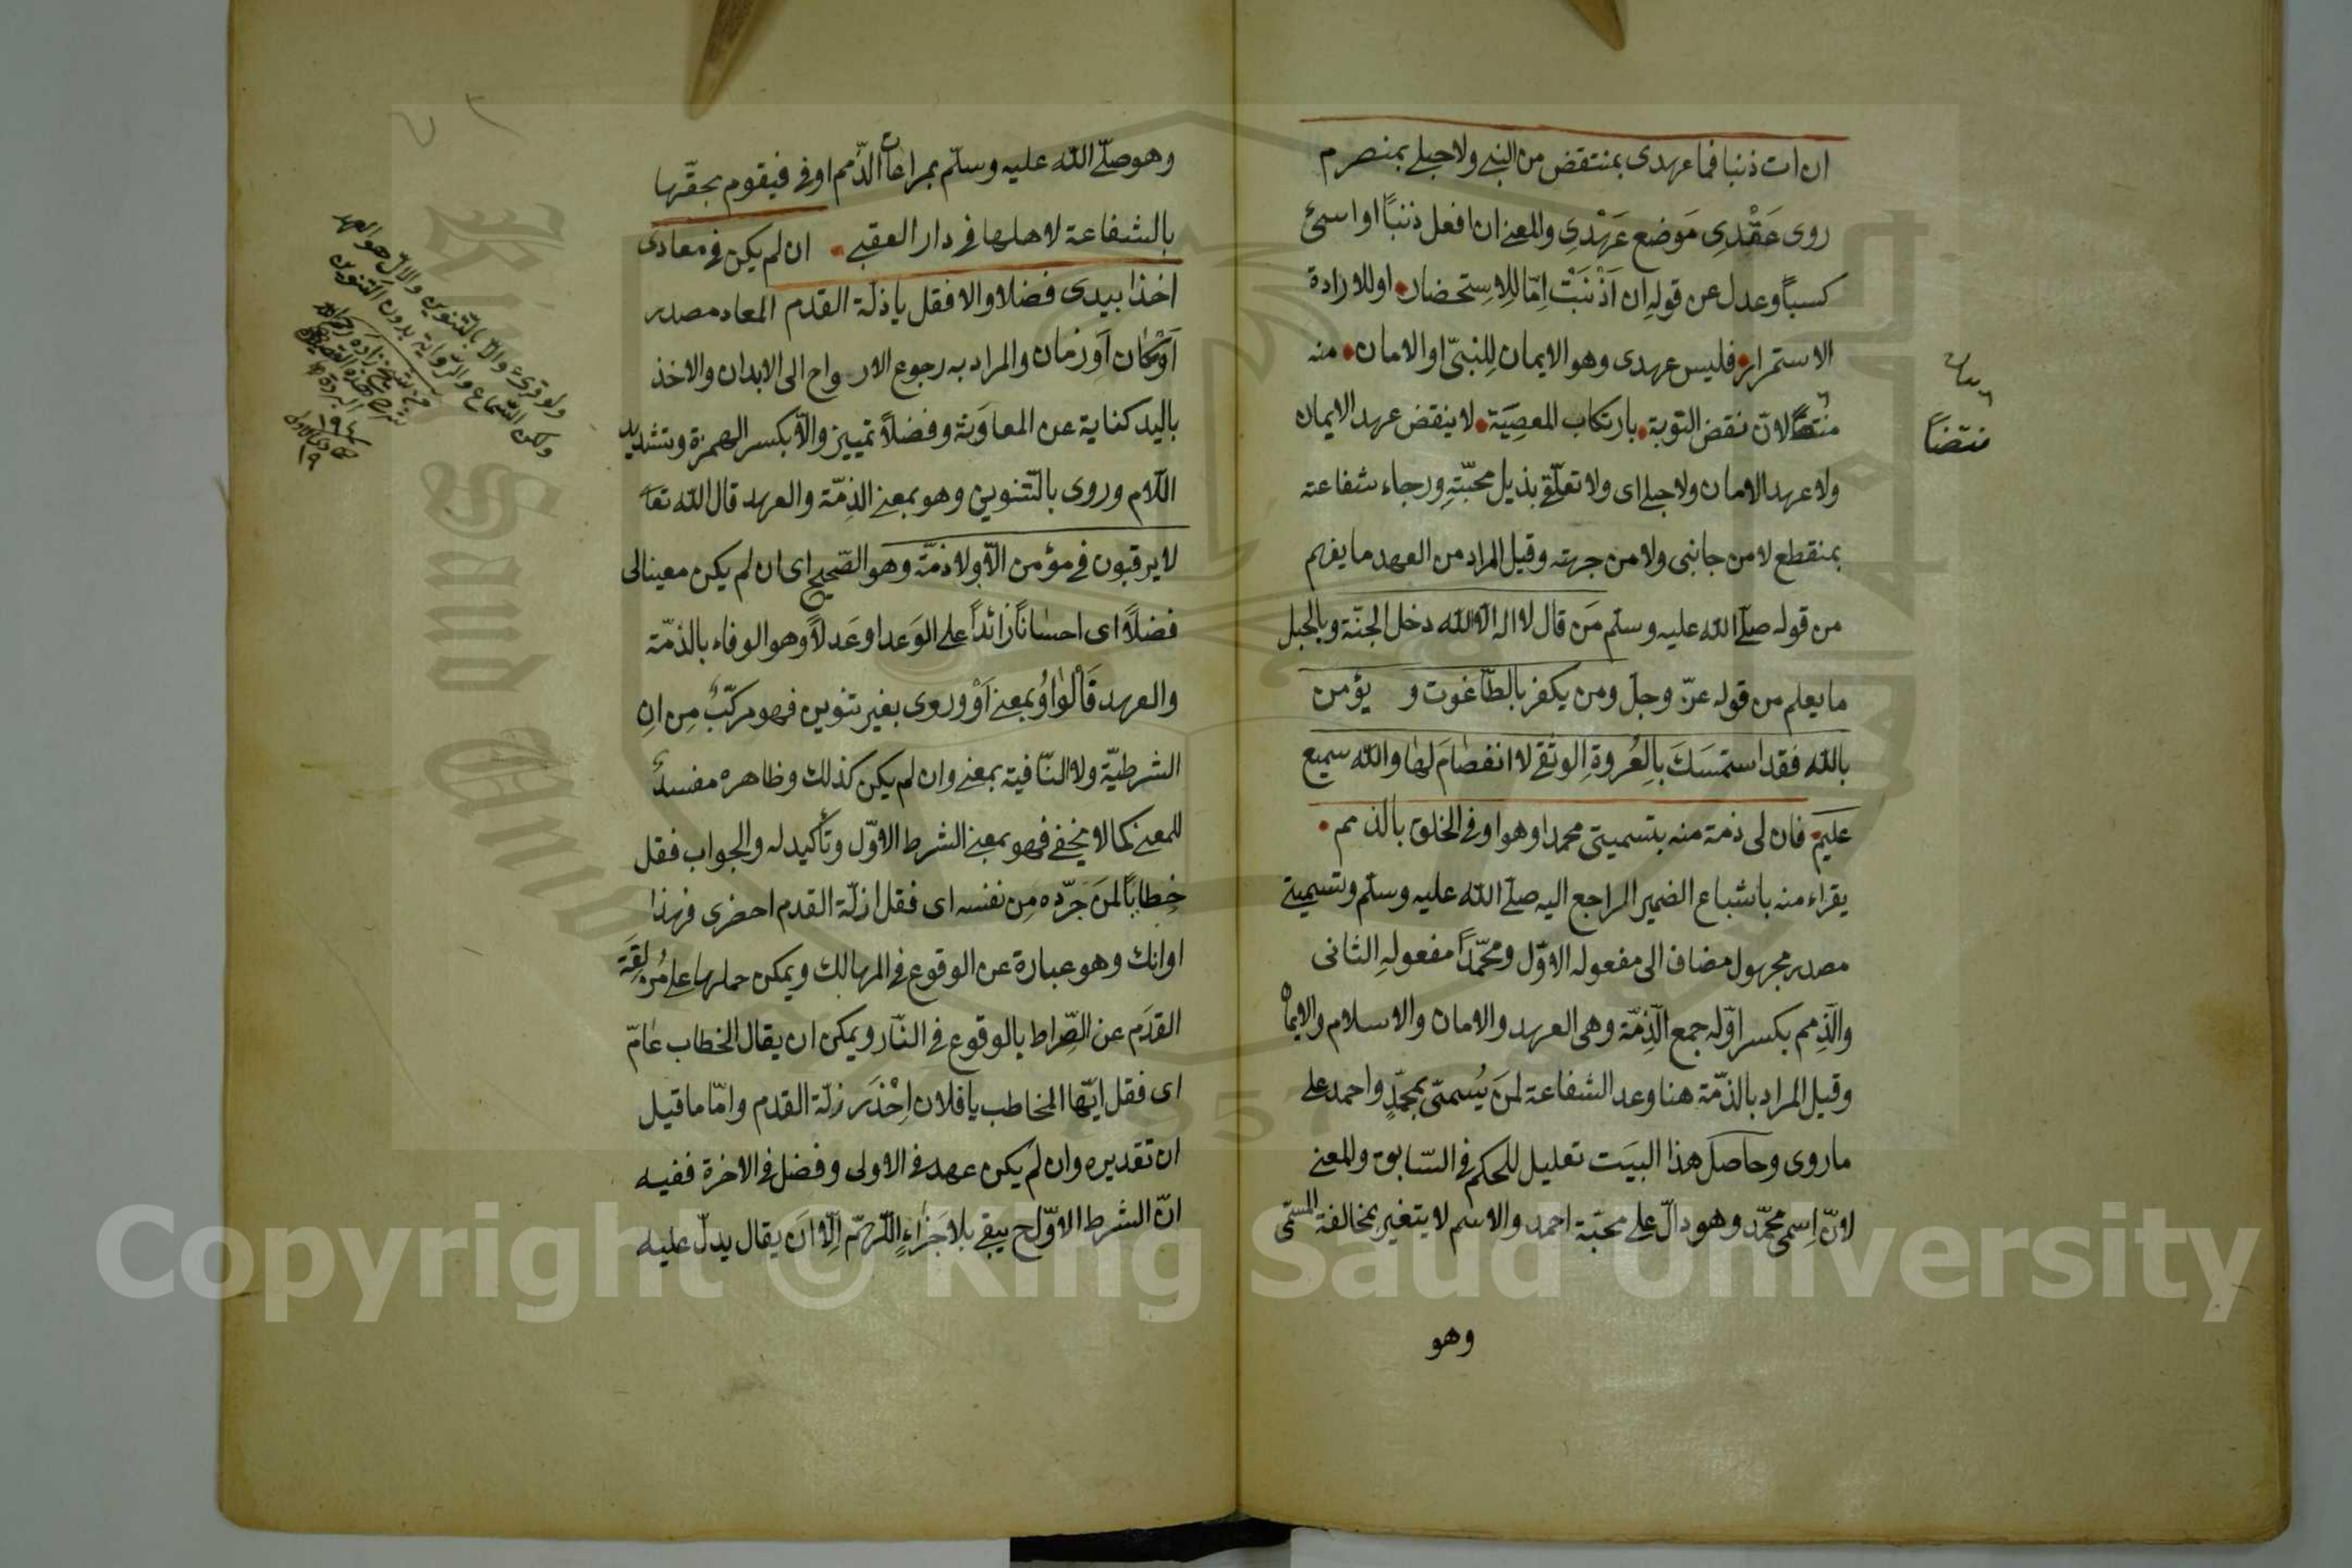 ان ات ذنبا فما عهدى بمنتقض من النبى ولا حبلى بمنصرم
روى عَقْدِى مَوضع عَهْدِى والمعنى ان افعل ذنبًا او اسئ
كسبًا وعدل عن قولهِ ان اَذْنَبْتُ اِمّا لِلاِستحضار او للارادة
الاستمرار فليس عهدى وهو الايمان لِلنبىّ او الامان منه
لانّ نقض التوبة بارتكاب المعصِيَة لا ينقض عهد الايمان
ولا عهد الامان ولا حبلى اى ولا تعلّقى بذيل محبّتهِ ورجاء شفاعته
بمنقطع لا من جانبى ولا من جهته وقيل المراد من العهد ما يفهم
من قوله صلّى الله عليه وسلّم مَن قال لا اله الّا الله دخل الجنّة وبالحبل
ما يعلم من قوله عزّ وجلّ ومن يكفر بالطّاغوت و يؤمن
بالله فقد استمسَكَ بِالعُروةِ الوثقى لا انفصَامَ لها والله سميع
عليم فان لى ذمة منه بتسميتى محمدا وهو اوفى الخلق بالذمم
يقراء منه باشباع الضمير الراجع اليه صلّى الله عليه وسلّم وتسميتى
مصدر مجهول مضاف الى مفعوله الاوّل ومحمّدًا مفعولهِ الثانى
والذِمم بكسر اوّله جمع الذِمّة وهى العهد والامان والاسلام والايمان
وقيل المراد بالذمّة هنا وعد الشفاعة لمَن يُسمّى بمحمّدٍ واحمد على
ما روى وحاصل هذا البيَت تعليل للحكم فى السّابق والمعنى
لانّ اِسمى محمّد وهو دالّ على محبّة احمد والاسم لا يتغير بمخالفة المسمّى
وهو
منتقضاً
وهو صلّى الله عليه وسلّم بمراعات الذّمم اوفى فيقوم بحقّها
بالشفاعة لاهلها فى دار العقبى ان لم يكن فى معادى
اخذا بيدى فضلا والا فقل يا ذلة القدم المعاد مصدر
اَوْ مكان اَو زمان والمراد به رجوع الارواح الى الابدان والاخذ
باليد كناية عن المعاوَنة وفضلاً تمييز والّا بكسر الهمزة وتشديد
اللّام وروى بالتنوين وهو بمعنى الذِمّة والعهد قال الله تعا
لا يرقبون فى مؤمن الّا ولا ذمّة وهو الصّحيح اى ان لم يكن معينا لى
فضلاً اى احسانًا زائدًا على الوَعد او عَدلاً وهو الوفاء بالذمّة
والعهد فَالْواوُ بمعنى اَوْ وروى بغير تنوين فهو مركّبٌ مِن انِ
الشرطيّة ولا النّافية بمعنى وان لم يكن كذلك وظاهره مفسدٌ
للمعنى كما لا يخفى فهو بمعنى الشرط الاوّل وتأكيد له والجواب فقل
خِطابًا لمَن جَرّده مِن نفسه اى فقل ازلّة القدم احضرى فهذا
اوانك وهو عبارة عن الوقوع فى المهالك ويمكن حملها على مُزلقَة
القدَم عن الصِّراط بالوقوع فى النّار ويمكن ان يقال الخطاب عَامّ
اى فقل ايّها المخاطب يا فلان اِحْذَر زلّة القدم وامّا ما قيل
ان تقديره وان لم يكن عهد فى الاولى وفضل فى الاخرة ففيه
انّ الشرط الاوّل ح يبقى بلا جَزاءٍ اللّهمّ اِلّا ان يقال يدلّ عليه
ولو قرئ والا بالتنوين والالّ هو العهد
ولكن السّماع والرّواية بدون التنوين